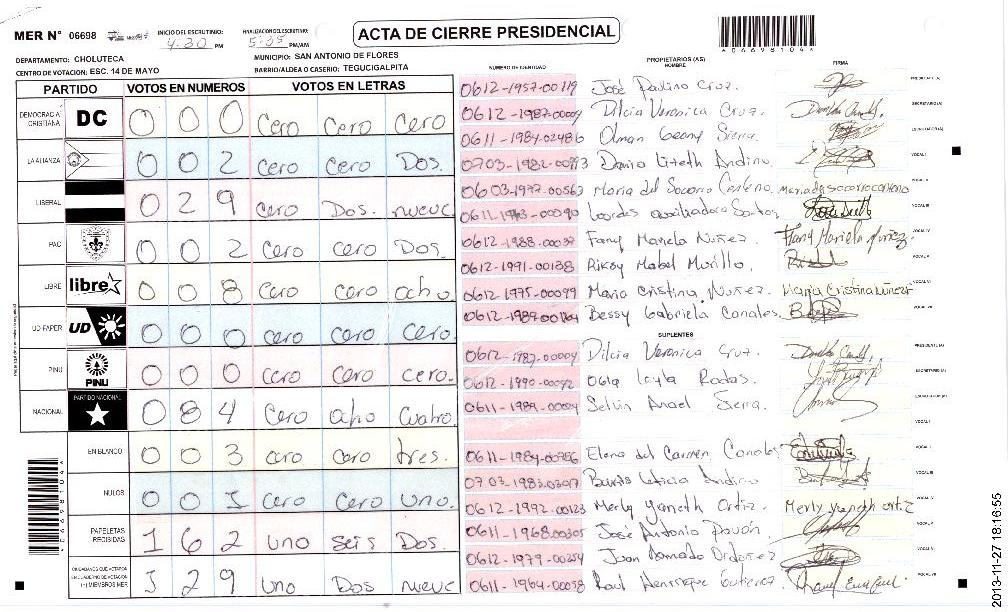 MER N° 06698 INICIO DEL ESCRUTINIO: 4:30 PM FINALIZACION DEL ESCRUTINIO: 5:35 PM/AM
ACTA DE CIERRE PRESIDENCIAL
*066981041*
DEPARTAMENTO: CHOLUTECA MUNICIPIO: SAN ANTONIO DE FLORES
CENTRO DE VOTACION: ESC. 14 DE MAYO BARRIO/ALDEA O CASERIO: TEGUCIGALPITA
PARTIDO VOTOS EN NUMEROS VOTOS EN LETRAS
DEMOCRACIA CRISTIANA DC 0 0 0 Cero Cero Cero
LA ALIANZA 0 0 2 Cero Cero Dos.
LIBERAL 0 2 9 Cero Dos. nueve
PAC 0 0 2 Cero cero Dos.
LIBRE libre 0 0 8 Cero Cero ocho.
UD-FAPER UD 0 0 0 Cero Cero Cero.
PINU PINU 0 0 0 Cero Cero cero.
NACIONAL PARTIDO NACIONAL 0 8 4 Cero ocho cuatro.
EN BLANCO 0 0 3 cero cero tres.
NULOS 0 0 1 Cero Cero uno.
PAPELETAS RECIBIDAS 1 6 2 uno seis Dos.
CIUDADANOS QUE VOTARON EN CUADERNO DE VOTACION (+) MIEMBROS MER 1 2 9 uno Dos nueve
*066981041*
NUMERO DE IDENTIDAD PROPIETARIOS (AS) NOMBRE FIRMA
0612-1957-00119 José Paulino Cruz. PRESIDENTE (A)
0612-1987-00009 Dilcia Veronica Cruz. SECRETARIO (A)
0611-1984-02486 Olman Geony Sierra ESCRUTADOR (A)
Dania Lizeth Andino. VOCAL I
0603-1977-00563 Maria del Socorro Centeno. Maria del socorro centeno
Lourdes auxiliadora Santos VOCAL III
Fany Mariela Nuñez. Fany Mariela Nuñez. VOCAL IV
0612-1991-00138 Riksy Mabel Murillo. VOCAL V
0612-1975-00099 Maria Cristina Nuñez. Maria Cristina Núñez
Bessy Gabriela Canales
SUPLENTES
0612-1987-00009 Dilcia Veronica Cruz. PRESIDENTE (A)
Leyla Rodas. SECRETARIO (A)
Selvin Anael Sierra.
VOCAL I
Elena del Carmen Canales
Leticia Andino VOCAL III
0612-1992-00123 Merly Yaneth Ortiz. Merly yaneth ortiz
0611-1968-00305 José Antonio Pavón.
0612-1979-00254 Juan Armado Ordoñez
0611-1964-00058 Raul Henrrique Gutierrez.
2013-11-27 18:16:55